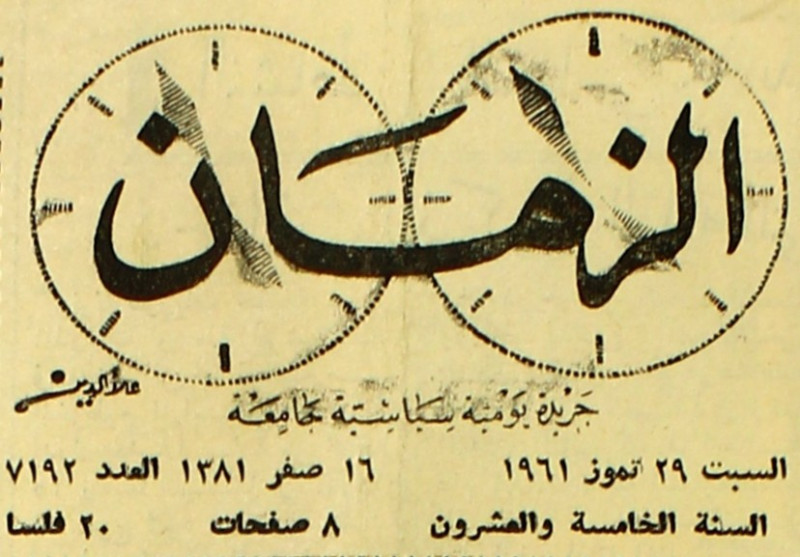 الزمان
علاءالدين
جَريدة يَوْميَة سِيَاسْيَة جَامِعَة
السبت ٢٩ تموز ١٩٦١ ١٦ صفر ١٣٨١ العدد ٧١٩٢
السنة الخامسة والعشرون ٨ صفحات ٢٠ فلسا